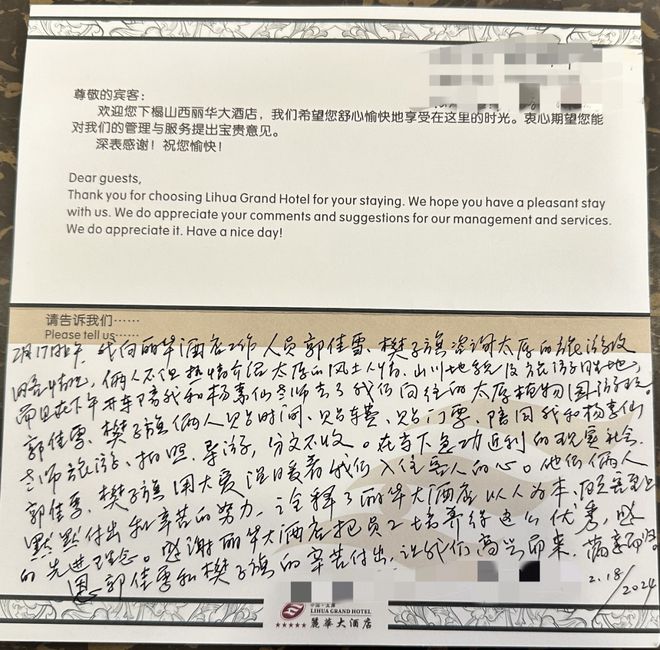 尊敬的宾客：
欢迎您下榻山西丽华大酒店，我们希望您舒心愉快地享受在这里的时光。衷心期望您能
对我们的管理与服务提出宝贵意见。
深表感谢！祝您愉快！
Dear guests,
Thank you for choosing Lihua Grand Hotel for your staying. We hope you have a pleasant stay
with us. We do appreciate your comments and suggestions for our management and services.
We do appreciate it. Have a nice day!
请告诉我们……
Please tell us……
2月17日上午 我向丽华酒店工作人员郭佳雪、樊子旗咨询太原的旅游攻
略情况，俩人不但热情介绍太原的风土人情、山川地貌及旅游胜地，
而且在下午开车陪我和杨喜仙老师去了我们向往的太原植物园游玩。
郭佳雪、樊子旗俩人贴时间、贴车费、贴门票 陪同我和杨喜仙
老师旅游、拍照、导游，分文不收。在当下急功近利的现实社会
郭佳雪、樊子旗用大爱温暖着我们入住客人的心。他们俩人
默默付出和辛苦的努力，诠释了丽华大酒店以人为本、顾客至上
的先进理念。感谢丽华大酒店把员工培养得这么优秀，感
恩郭佳雪和樊子旗的辛苦付出，让我们高兴而来，满意而归。
2.18/2024
中国·太原
LIHUA GRAND HOTEL
麗華大酒店